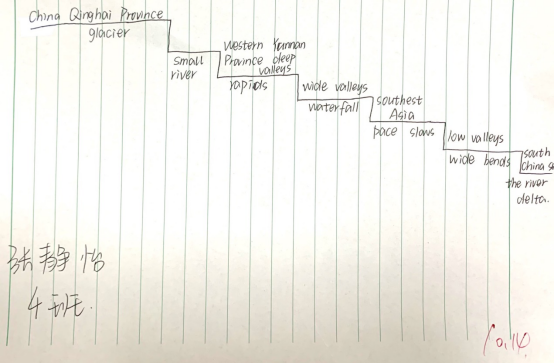 China Qinghai Province
glacier
small
river
western Yunnan
Province deep
valleys
rapids
wide valleys
waterfall
southest
Asia
pace slows
low valleys
wide bends
south
China s
the river
delta.
张静怡
4班.
10.14